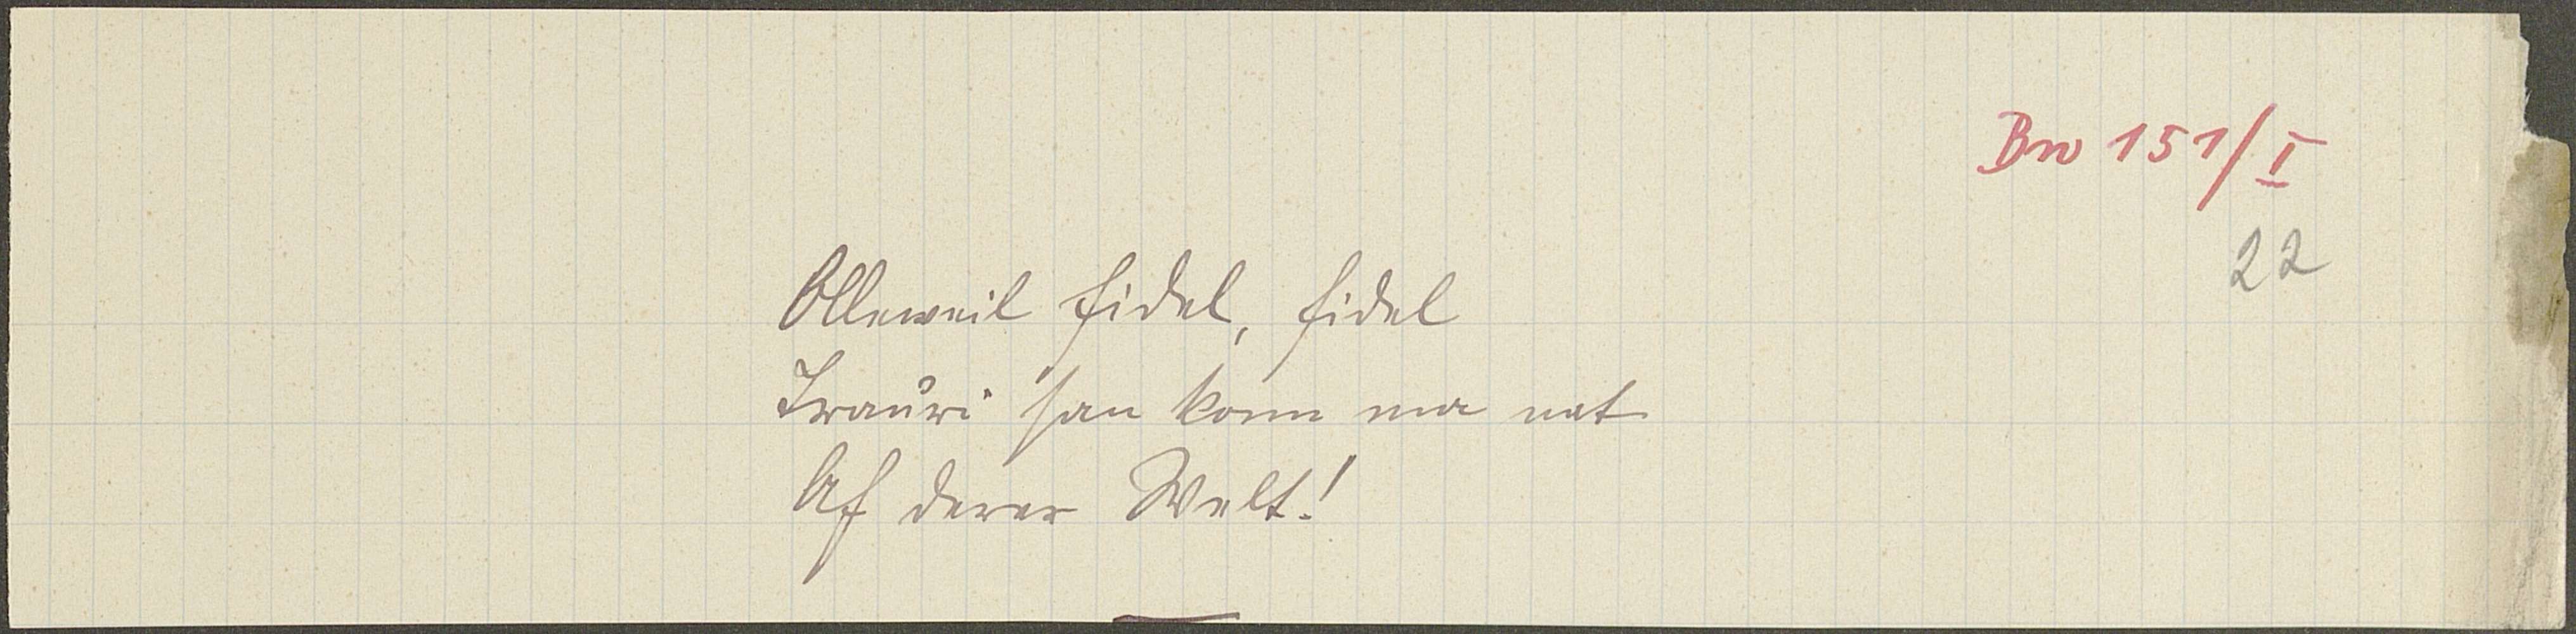 Bw 151/I
22
Olleweil fidel, fidel
Trauri san konn ma net
Af derer Welt!